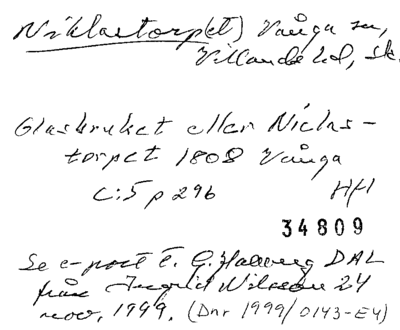 Niklastorp(et) Vånga sn,
Villands hd, Sk.
Glasbruket eller Niclas-
torpet 1808 Vånga
C:5 p 296 HH
34809
Se e-post t. G. Hallberg DAL
från Ingrid Nilsson 24
nov. 1999. (Dnr 1999/0143-E4)